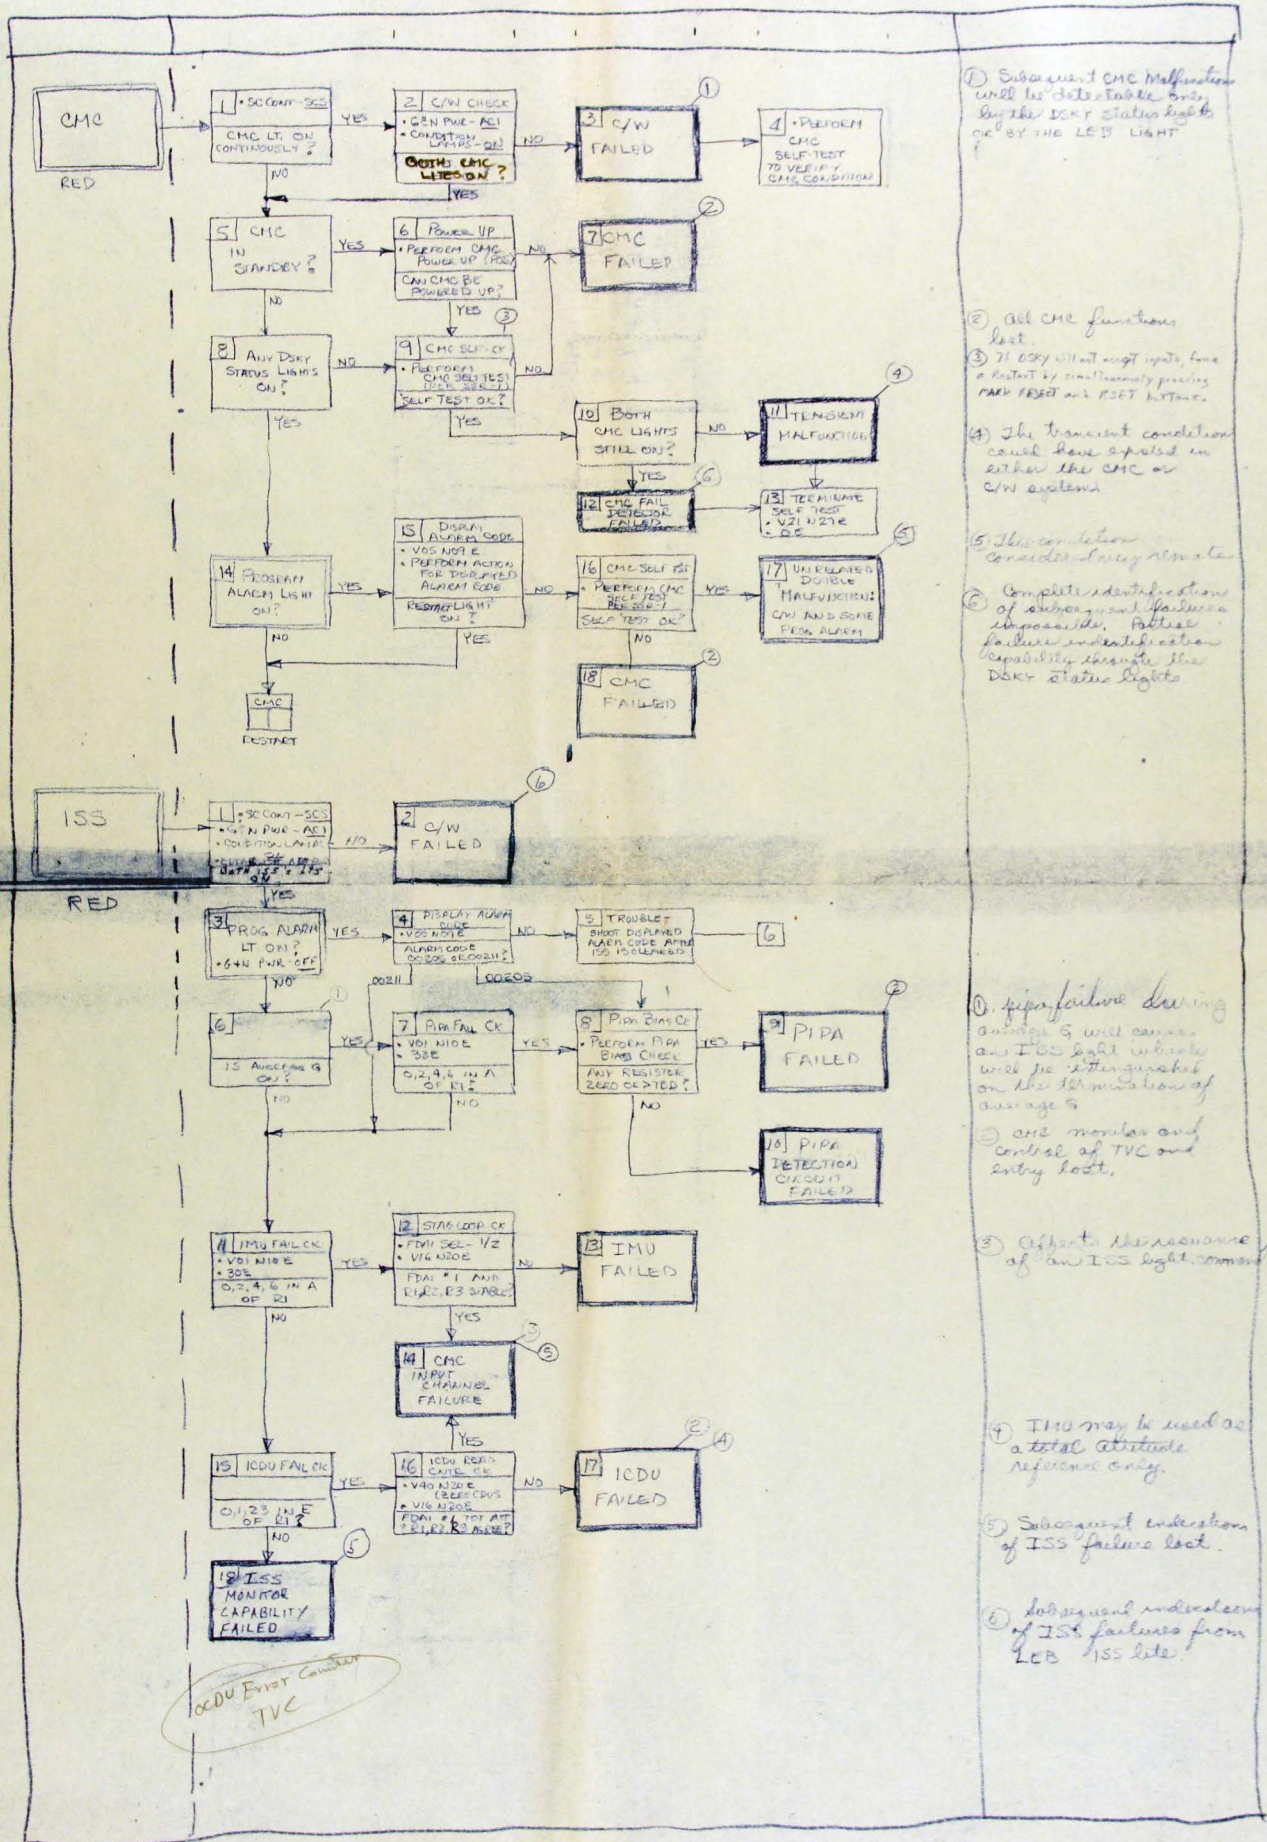 CMC
RED
1 • SC CONT-SCS
CMC LT. ON
CONTINOUSLY?
YES
NO
2 C/W CHECK
• G&N PWR-AC1
• CONDITION
LAMPS-ON
BOTH CMC
LITES ON?
NO
YES
①
3 C/W
FAILED
4 • PERFORM
CMC
SELF-TEST
TO VERIFY
CMC CONDITION
5 CMC
IN
STANDBY?
YES
NO
6 POWER UP
• PERFORM CMC
POWER UP (POS)
CAN CMC BE
POWERED UP?
NO
YES
②
7 CMC
FAILED
8 ANY DSKY
STATUS LIGHTS
ON?
NO
YES
③
9 CMC SLF-CK
• PERFORM
CMC SELF TEST
(PER SSR-1)
SELF TEST OK?
NO
YES
10 BOTH
CMC LIGHTS
STILL ON?
NO
YES
④
11 TRANSIENT
MALFUNCTION
⑥
12 CMC FAIL
DETECTOR
FAILED
13 TERMINATE
SELF TEST
• V21 N27E
• 0E
14 PROGRAM
ALARM LIGHT
ON?
YES
NO
15 DISPLAY
ALARM CODE
• V05 N09 E
• PERFORM ACTION
FOR DISPLAYED
ALARM CODE
RESTART LIGHT
ON?
NO
YES
16 CMC SELF TST
• PERFORM CMC
SELF TEST
PER SSR-1
SELF TEST OK?
YES
NO
⑤
17 UNRELATED
DOUBLE
MALFUNCTION:
C/W AND SOME
PROG ALARM
②
18 CMC
FAILED
CMC
RESTART
① Subsequent CMC Malfunctions
will be detectable only
by the DSKY status lights
OR BY THE LEB LIGHT
② All CMC functions
lost.
③ If DSKY will not accept inputs, force
a Restart by simultaneously pressing
MARK REJECT and RSET buttons.
④ The transient condition
could have existed in
either the CMC or
C/W system
⑤ This condition
considered very remote
⑥ Complete identification
of subsequent failures
impossible. Partial
failure indentification
capability through the
DSKY status lights.
ISS
RED
1 • SC CONT-SCS
• G&N PWR-AC1
• CONDITION LAMPS
BOTH ISS LTS
ON
NO
YES
⑥
2 C/W
FAILED
3 PROG ALARM
LT ON?
• G&N PWR-OFF
YES
NO
4 DISPLAY ALARM
CODE
• V05 N09E
ALARM CODE
00205 OR 00211?
NO
00211
00205
5 TROUBLE-
SHOOT DISPLAYED
ALARM CODE AFTER
ISS IS CLEARED
6
①
6
IS AVERAGE G
ON?
YES
NO
7 PIPA FAIL CK
• V01 N10E
• 33E
0,2,4,6 IN A
OF R1?
YES
NO
8 PIPA BIAS CK
• PERFORM PIPA
BIAS CHECK
ANY REGISTER
ZERO OR
YES
NO
②
9 PIPA
FAILED
10 PIPA
DETECTION
CIRCUIT
FAILED
11 IMU FAIL CK
• V01 N10E
• 30E
0,2,4,6 IN A
OF R1
YES
NO
12 STAB LOOP CK
• FDAI SEL- 1/2
• V16 N20E
FDAI #1 AND
R1,R2,R3 STABLE?
NO
YES
13 IMU
FAILED
③
⑤
14 CMC
INPUT
CHANNEL
FAILURE
YES
15 ICDU FAIL CK
0,1,2,3 IN E
OF R1?
YES
NO
16 ICDU READ
CNTR CK
• V40 N20E
(ZERO CDUS
• V16 N20E
FDAI #1 TOT ATT
R1,R2,R3 AGREE?
NO
②
④
17 ICDU
FAILED
⑤
18 ISS
MONITOR
CAPABILITY
FAILED
OCDU Error Counter
TVC
① pipa failure during
average G will cause
an ISS light which
will be extinguished
on the termination of
average G
② CMC monitor and
control of TVC and
entry lost.
③ Affects the issuance
of an ISS light command
④ IMU may be used as
a total attitude
reference only.
⑤ Subsequent indications
of ISS failure lost.
⑥ Subsequent indications
of ISS failures from
LEB ISS lite.